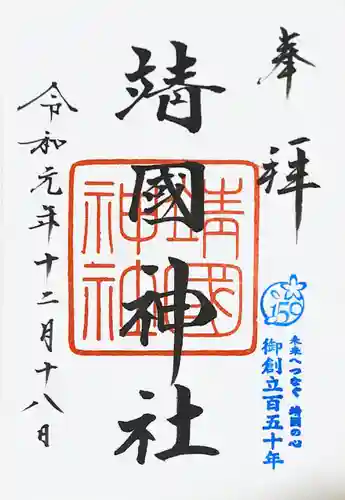 奉拝
未来へつなぐ 靖國の心
御創立百五十年
150
靖國神社
靖國神社
令和元年十二月十八日